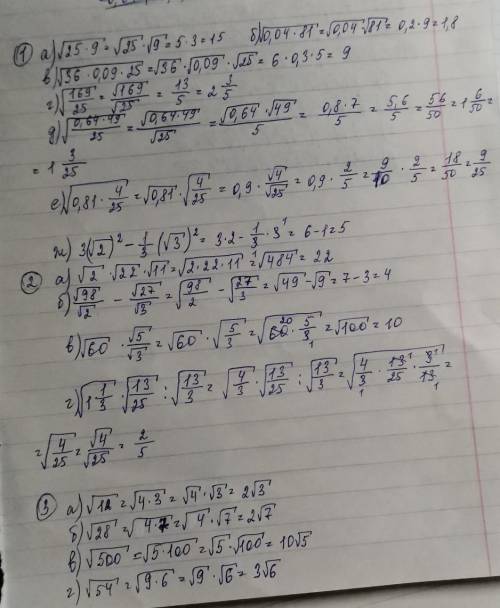 ① а) √25·9 = √25·√9 = 5·3 = 15 б) √0,04·81 = √0,04·√81 = 0,2·9 = 1,8
в) √36·0,09·25 = √36·√0,09·√25 = 6·0,3·5 = 9
г) √169/25 = √169/√25 = 13/5 = 2 3/5
д) √0,64·49/25 = √0,64·49/√25 = √0,64·√49/5 = 0,8·7/5 = 5,6/5 = 56/50 = 1 6/50 =
= 1 3/25
е) √0,81·4/25 = √0,81·√4/25 = 0,9·√4/√25 = 0,9·2/5 = 9/10·2/5 = 18/50 = 9/25
ж) 3(√2)² - 1/3(√3)² = 3·2 - 1/3·3¹ = 6-1 = 5
② а) √2·√22·√11 = √2·22·11 = √484 = 22
б) √98/√2 - √27/√3 = √98/2 - √27/3 = √49 - √9 = 7-3 = 4
в) √60·√5/√3 = √60·√5/3 = √60²⁰·5/3₁ = √100 = 10
г) √1 1/3·√13/25 : √13/3 = √4/3·√13/25 : √13/3 = √4/3₁·13¹/25·3¹/13₁ =
= √4/25 = √4/√25 = 2/5
③ а) √12 = √4·3 = √4·√3 = 2√3
б) √28 = √4·7 = √4·√7 = 2√7
в) √500 = √5·100 = √5·√100 = 10√5
г) √54 = √9·6 = √9·√6 = 3√6